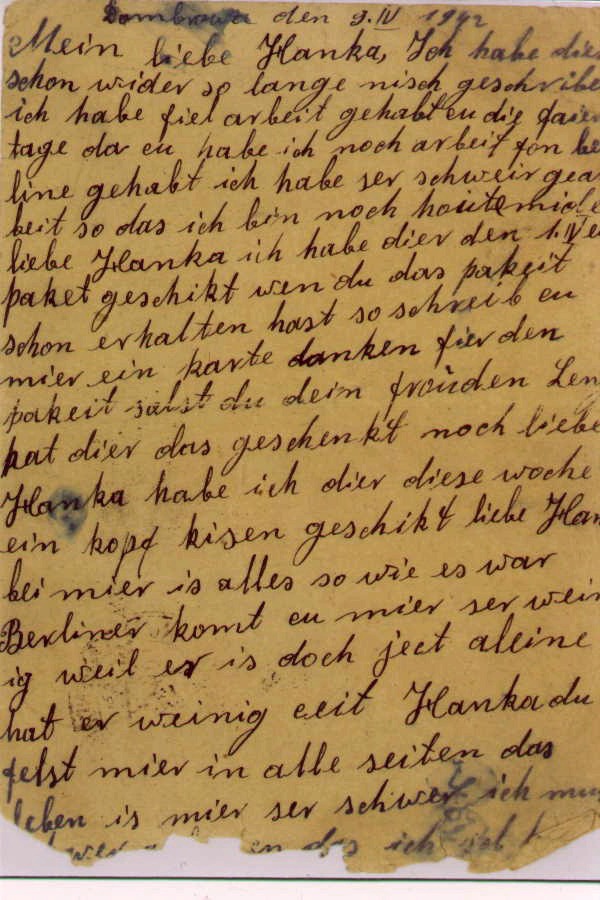 Dombrowa den 9.IV 1942
Mein liebe Hanka, Ich habe dier
schon wider so lange nisch geschribe
ich habe fiel arbeit gehabt cu die faier
tage da cu habe ich noch arbeit fon be
line gehabt ich habe ser schweir gear
beit so das ich bin noch houte mide
liebe Hanka ich habe dier den 1.IV ein
paket geschikt wen du das pakeit
schon erhalten hast so schreib cu
mier ein karte danken fier den
pakeit salst du dein froiuden Len
hat dier das geschenkt noch liebe
Hanka habe ich dier diese woche
ein kopf kisen geschikt liebe Han
bei mier is alles so wie es war
Berliner komt cu mier ser wein
ig weil er is doch ject aleine
hat er weinig ceit Hanka du
felst mier in alle seiten das
leben is mier ser schwer ich mus
das ich